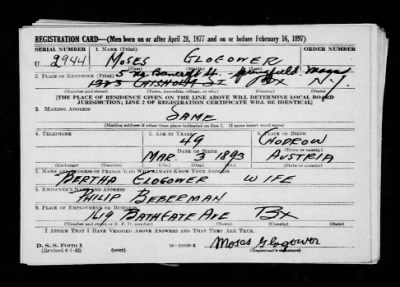 REGISTRATION CARD—(Men born on or after April 28, 1877 and on or before February 16, 1897)
SERIAL NUMBER 1. NAME (Print)
U 2944 MOSES GLOGOWER
2. PLACE OF RESIDENCE (Print) 5 Bancroft St. Springfield Mass
ST BX N.Y.
(Number and street) (Town, township, village, or city) (County) (State)
[THE PLACE OF RESIDENCE GIVEN ON THE LINE ABOVE WILL DETERMINE LOCAL BOARD
JURISDICTION; LINE 2 OF REGISTRATION CERTIFICATE WILL BE IDENTICAL]
3. MAILING ADDRESS
SAME
[Mailing address if other than place indicated on line 2. If same insert word same]
4. TELEPHONE 5. AGE IN YEARS 6. PLACE OF BIRTH
49 CHODROW
DATE OF BIRTH (Town or county)
MAR. 3 1893 AUSTRIA
(Exchange) (Number) (Mo.) (Day) (Yr.) (State or country)
7. NAME AND ADDRESS OF PERSON WHO WILL ALWAYS KNOW YOUR ADDRESS
BERTHA GLOGOWER WIFE
8. EMPLOYER'S NAME AND ADDRESS
PHILIP BEBERMAN
9. PLACE OF EMPLOYMENT OR BUSINESS
1619 BATHGATE AVE BX
(Number and street or R. F. D. number) (Town) (County) (State)
I AFFIRM THAT I HAVE VERIFIED ABOVE ANSWERS AND THAT THEY ARE TRUE.
D. S. S. Form 1
(Revised 4-1-42) (over) Moses Glogower
(Registrant's signature)